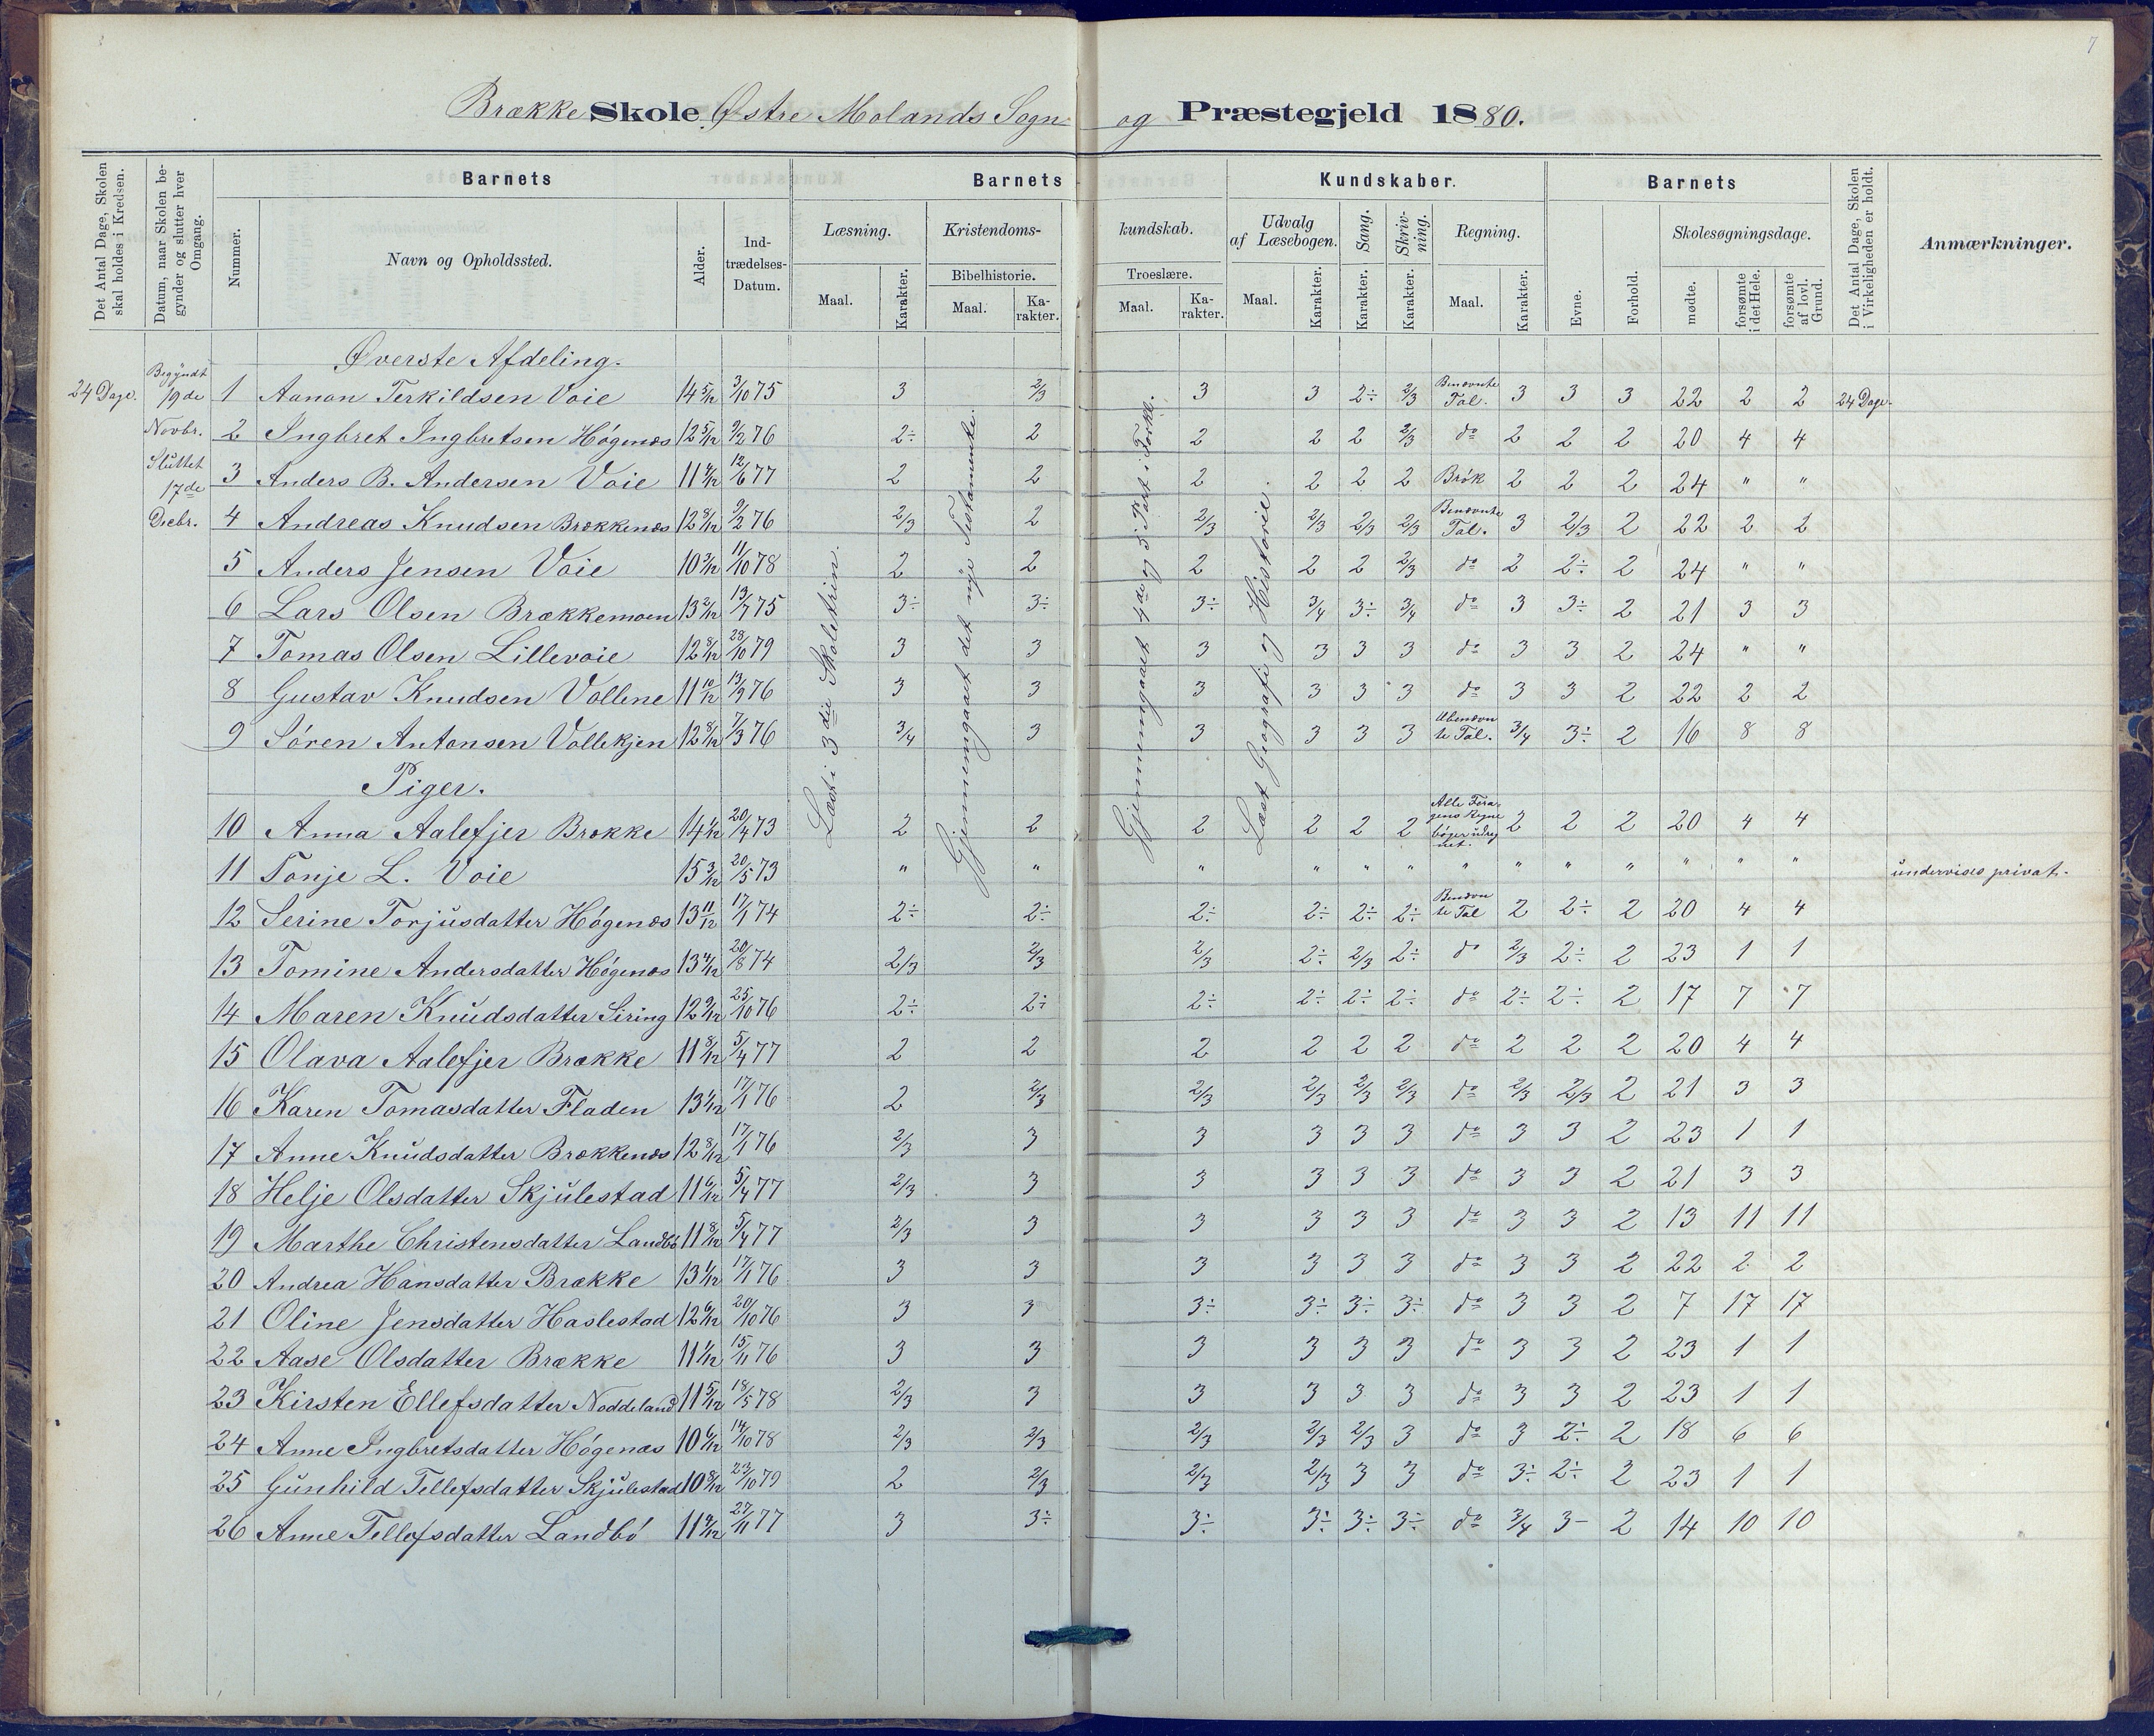 7
Brække Skole Østre Molands Sogn og Præstegjeld 1880.
Det Antal Dage, Skolen skal holdes i Kredsen.
Datum, naar Skolen begynder og slutter hver Omgang.
Barnets
Nummer.
Navn og Opholdssted.
Alder.
Indtrædelses-Datum.
Barnets Kundskaber.
Læsning.
Maal.
Karakter.
Kristendomskundskab.
Bibelhistorie.
Maal.
Karakter.
Troeslære.
Maal.
Karakter.
Udvalg af Læsebogen.
Maal.
Karakter.
Sang.
Karakter.
Skrivning.
Karakter.
Regning.
Maal.
Karakter.
Barnets
Evne.
Forhold.
Skolesøgningsdage.
mødte.
forsømte i det Hele.
forsømte af lovl. Grund.
Det Antal Dage, Skolen i Virkeligheden er holdt.
Anmærkninger.
24 Dage.
Begyndt 19de Novbr. Sluttet 17de Decbr.
Læst i 3die Skoletrin.
Gjennemgaaet det nye Testamente.
Gjennemgaaet 4de og 5 Part i Forkl.
Læst Geografi og Historie.
Øverste Afdeling.
1 Aanon Terkildsen Voie 14 5/12 3/10 75 3 2/3 3 3 2÷ 2/3 Benævnte Tal. 3 3 3 22 2 2 24 Dage.
2 Ingbret Ingbretsen Høgenæs 12 5/12 9/2 76 2÷ 2 2 2 2 2/3 do 2 2 2 20 4 4
3 Anders B. Andersen Voie 11 4/12 12/6 77 2 2 2 2 2 2 Brøk 2 2 2 24 " "
4 Andreas Knudsen Brækkenæs 12 8/12 9/2 76 2/3 2 2/3 2/3 2/3 2/3 Benævnte Tal. 3 2/3 2 22 2 2
5 Anders Jensen Voie 10 3/12 11/10 78 2 2 2 2 2 2/3 do 2 2÷ 2 24 " "
6 Lars Olsen Brækkemoen 13 2/12 13/7 75 3÷ 3÷ 3÷ 3/4 3÷ 3/4 do 3 3÷ 2 21 3 3
7 Tomas Olsen Lillevoie 12 8/12 28/10 79 3 3 3 3 3 3 do 3 3 2 24 " "
8 Gustav Knudsen Vollene 11 10/12 13/9 76 3 3 3 3 3 3 do 3 3 2 22 2 2
9 Søren Antonsen Vollekjen 12 8/12 7/3 76 3/4 3 3 3 3 3 Ubenævnte Tal. 3/4 3÷ 2 16 8 8
Piger.
10 Anna Aalefjer Brække 14 1/12 20/4 73 2 2 2 2 2 2 2 2 2 20 4 4
11 Tonje L. Voie 15 3/12 20/5 73 " " " " " " " " " " " " " undervises privat.
12 Serine Torjusdatter Høgenæs 13 11/12 17/1 74 2÷ 2÷ 2÷ 2÷ 2÷ 2÷ Benævnte Tal 2 2÷ 2 20 4 4
13 Tomine Andersdatter Høgenæs 13 4/12 20/8 74 2/3 2/3 2/3 2÷ 2/3 2÷ do 2/3 2÷ 2 23 1 1
14 Maren Knudsdatter Siring 12 9/12 25/10 76 2÷ 2÷ 2÷ 2÷ 2÷ 2÷ do 2÷ 2÷ 2 17 7 7
15 Olava Aalefjer Brække 11 8/12 5/4 77 2 2 2 2 2 2 do 2 2 2 20 4 4
16 Karen Tomasdatter Fladen 13 1/12 17/1 76 2 2/3 2/3 2/3 2/3 2/3 do 2/3 2/3 2 21 3 3
17 Anne Knudsdatter Brækkenæs 12 8/12 17/1 76 2/3 3 3 3 3 3 do 3 3 2 23 1 1
18 Helje Olsdatter Skjulestad 11 6/12 5/4 77 2/3 3 3 3 3 3 do 3 3 2 21 3 3
19 Marthe Christensdatter Landbø 11 8/12 5/4 77 2/3 3 3 3 3 3 do 3 3 2 13 11 11
20 Andrea Hansdatter Brække 13 1/12 17/1 76 3 3 3 3 3 3 do 3 3 2 22 2 2
21 Oline Jensdatter Haslestad 12 6/12 20/10 76 3 3 3÷ 3÷ 3÷ 3÷ do 3 3 2 7 17 17
22 Aase Olsdatter Brække 11 1/12 15/11 76 3 3 3 3 3 3 do 3 3 2 23 1 1
23 Kirsten Ellefsdatter Noddeland 11 5/12 18/5 78 2/3 3 3 3 3 3 do 3 3 2 23 1 1
24 Anne Ingbretsdatter Høgenæs 10 6/12 14/10 78 2/3 2/3 2/3 2/3 2/3 3 do 3 2÷ 2 18 6 6
25 Gunhild Tellefsdatter Skjulestad 10 8/12 23/10 79 2 2/3 2/3 2/3 3 3 do 3÷ 2÷ 2 23 1 1
26 Anne Tellefsdatter Landbø 11 4/12 27/11 77 3 3÷ 3÷ 3÷ 3÷ 3÷ do 3/4 3- 2 14 10 10